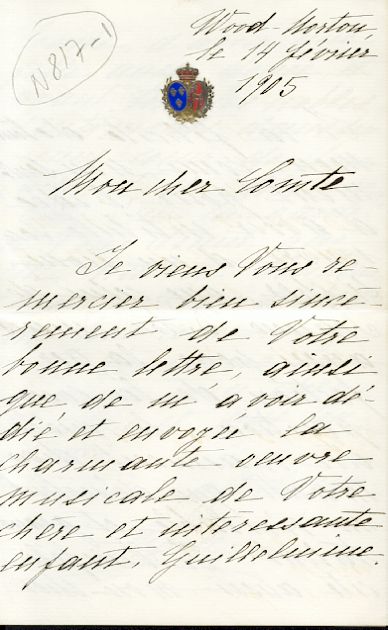 N 817-1
Wood-Norton,
le 14 février
1905
Mon cher Comte
Je viens Vous re-
mercier bien sincè-
rement de Votre
bonne lettre, ainsi
que de m'avoir dé-
dié et envoyé la
charmante oeuvre
musicale de Votre
chère et intéressante
enfant, Guillelmine.